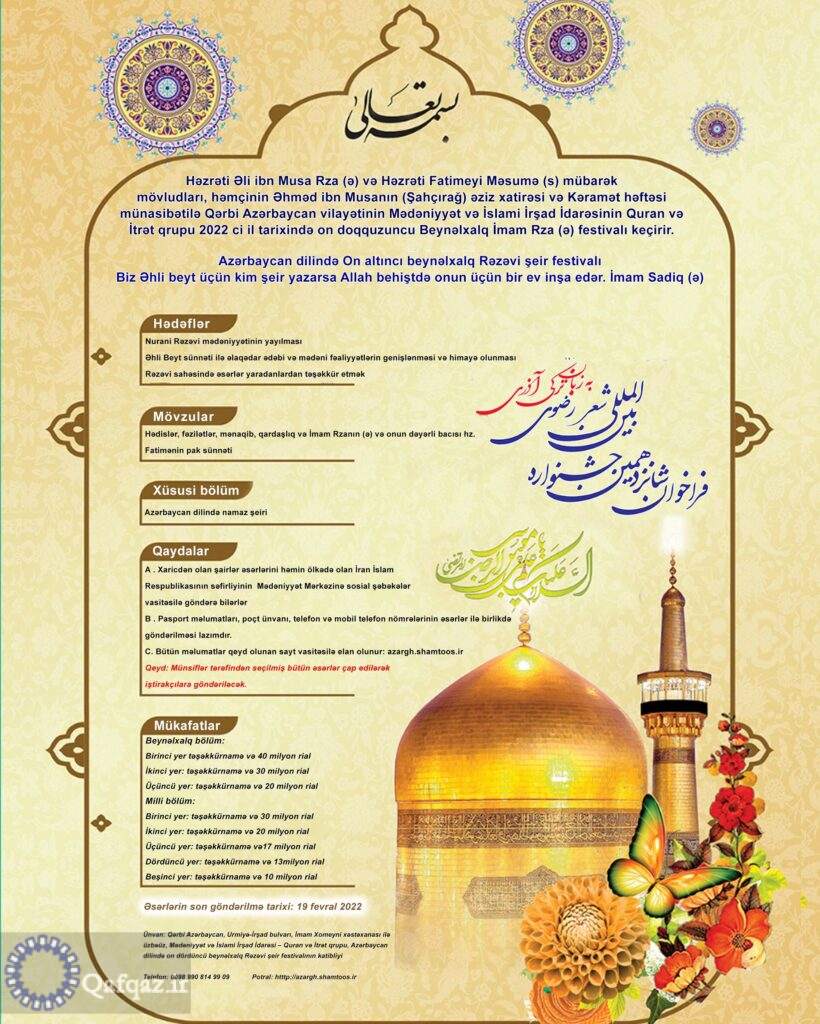 بسمه تعالی
Həzrəti Əli ibn Musa Rza (ə) və Həzrəti Fatimeyi Məsumə (s) mübarək
mövludları, həmçinin Əhməd ibn Musanın (Şahçırağ) əziz xatirəsi və Kəramət həftəsi
münasibətilə Qərbi Azərbaycan vilayətinin Mədəniyyət və İslami İrşad İdarəsinin Quran və
İtrət qrupu 2022 ci il tarixində on doqquzuncu Beynəlxalq İmam Rza (ə) festivalı keçirir.
Azərbaycan dilində On altıncı beynəlxalq Rəzəvi şeir festivalı
Biz Əhli beyt üçün kim şeir yazarsa Allah behiştdə onun üçün bir ev inşa edər. İmam Sadiq (ə)
Hədəflər
Nurani Rəzəvi mədəniyyətinin yayılması
Əhli Beyt sünnəti ilə əlaqədar ədəbi və mədəni fəaliyyətlərin genişlənməsi və himayə olunması
Rəzəvi sahəsində əsərlər yaradanlardan təşəkkür etmək
به زبان ترکی آذری
بین المللی شعر رضوی
فراخوان شانزدهمین جشنواره
Mövzular
Hədislər, fəzilətlər, mənaqib, qardaşlıq və İmam Rzanın (ə) və onun dəyərli bacısı hz.
Fatimənin pak sünnəti
Xüsusi bölüm
Azərbaycan dilində namaz şeiri
Qaydalar
A . Xaricdən olan şairlər əsərlərini həmin ölkədə olan İran İslam
Respublikasının səfirliyinin Mədəniyyət Mərkəzinə sosial şəbəkələr
vasitəsilə göndərə bilərlər
B . Pasport məlumatları, poçt ünvanı, telefon və mobil telefon nömrələrinin əsərlər ilə birlikdə
göndərilməsi lazımdır.
C. Bütün məlumatlar qeyd olunan sayt vasitəsilə elan olunur: azargh.shamtoos.ir
Qeyd: Münsiflər tərəfindən seçilmiş bütün əsərlər çap edilərək
iştirakçılara göndəriləcək.
Mükafatlar
Beynəlxalq bölüm:
Birinci yer təşəkkürnamə və 40 milyon rial
İkinci yer: təşəkkürnamə və 30 milyon rial
Üçüncü yer: təşəkkürnamə və 20 milyon rial
Milli bölüm:
Birinci yer: təşəkkürnamə və 30 milyon rial
İkinci yer: təşəkkürnamə və 20 milyon rial
Üçüncü yer: təşəkkürnamə və17 milyon rial
Dördüncü yer: təşəkkürnamə və 13milyon rial
Beşinci yer: təşəkkürnamə və 10 milyon rial
Əsərlərin son göndərilmə tarixi: 19 fevral 2022
Ünvan: Qərbi Azərbaycan, Urmiyə-İrşad bulvarı, İmam Xomeyni xəstəxanası ilə
üzbəüz, Mədəniyyət və İslami İrşad İdarəsi – Quran və İtrət qrupu, Azərbaycan
dilində on dördüncü beynəlxalq Rəzəvi şeir festivalının katibliyi
Telefon: 0098 990 814 99 09 Potral: htttp://azargh.shamtoos.ir
Qafqaz.ir